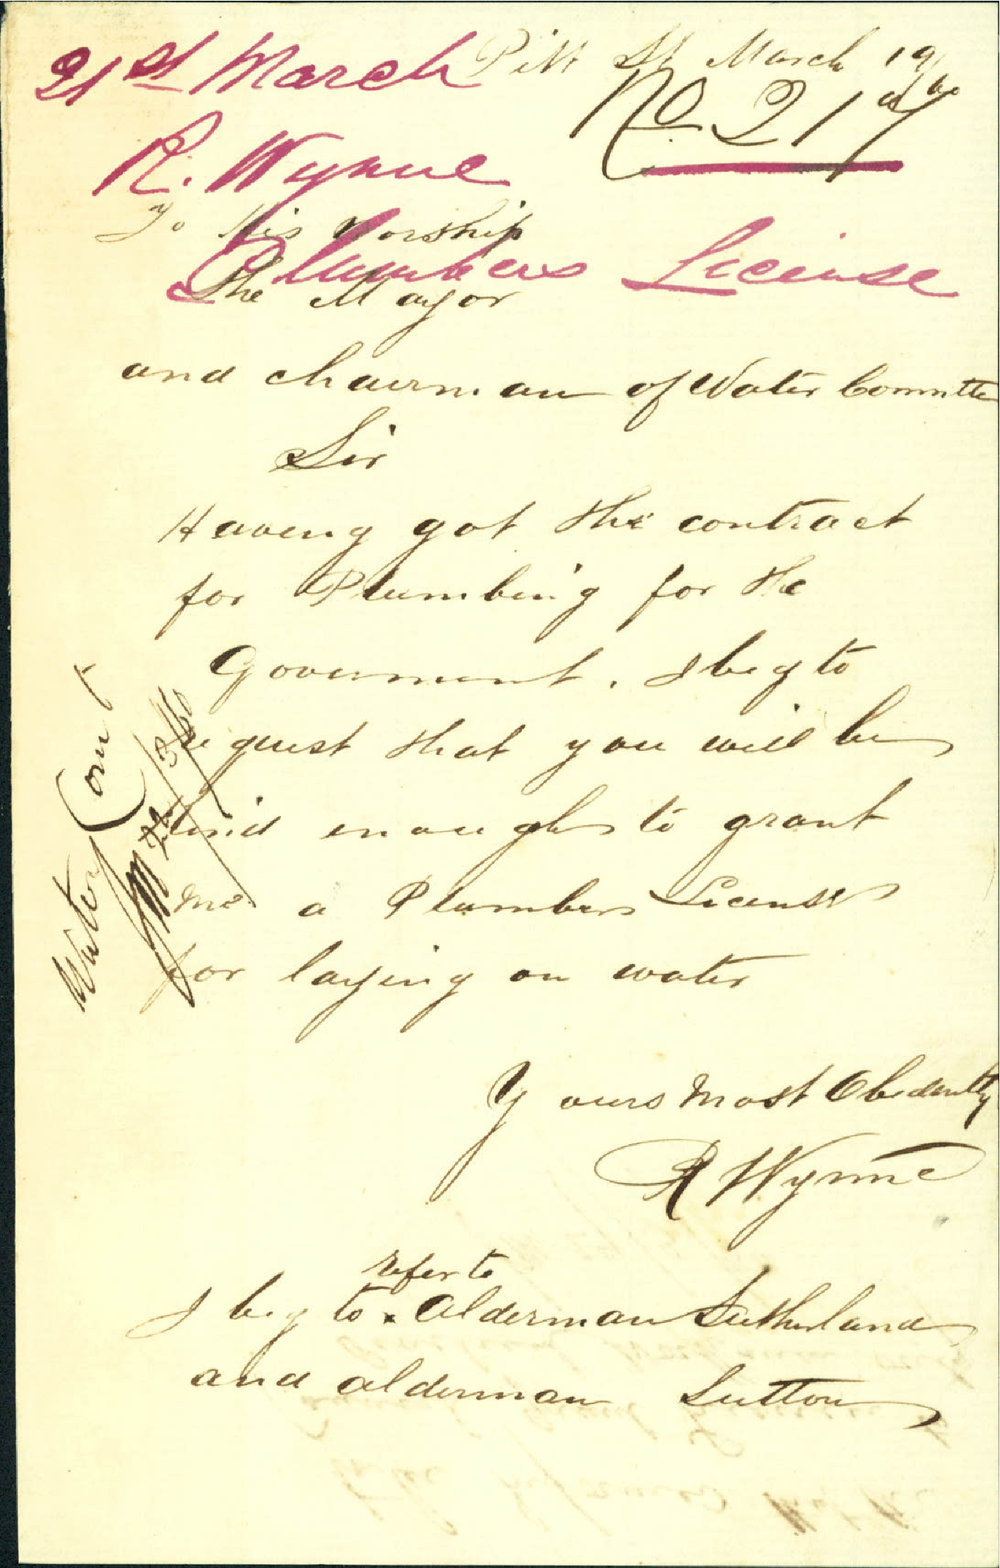 21st March
Pitt St March 19/60
No. 217
R. Wynne
To His Worship
Plumbers License
The Mayor
and chairman of Water Committe
Sir
Having got the contract
for Plumbing for the
Goverment. I beg to
request that you will be
kind enough to grant
me a Plumbers License
for laying on water
Yours Most Obediently
R Wynne
refer to
I beg to x Alderman Sutherland
and alderman Sutton
Water Comt
22/3/60